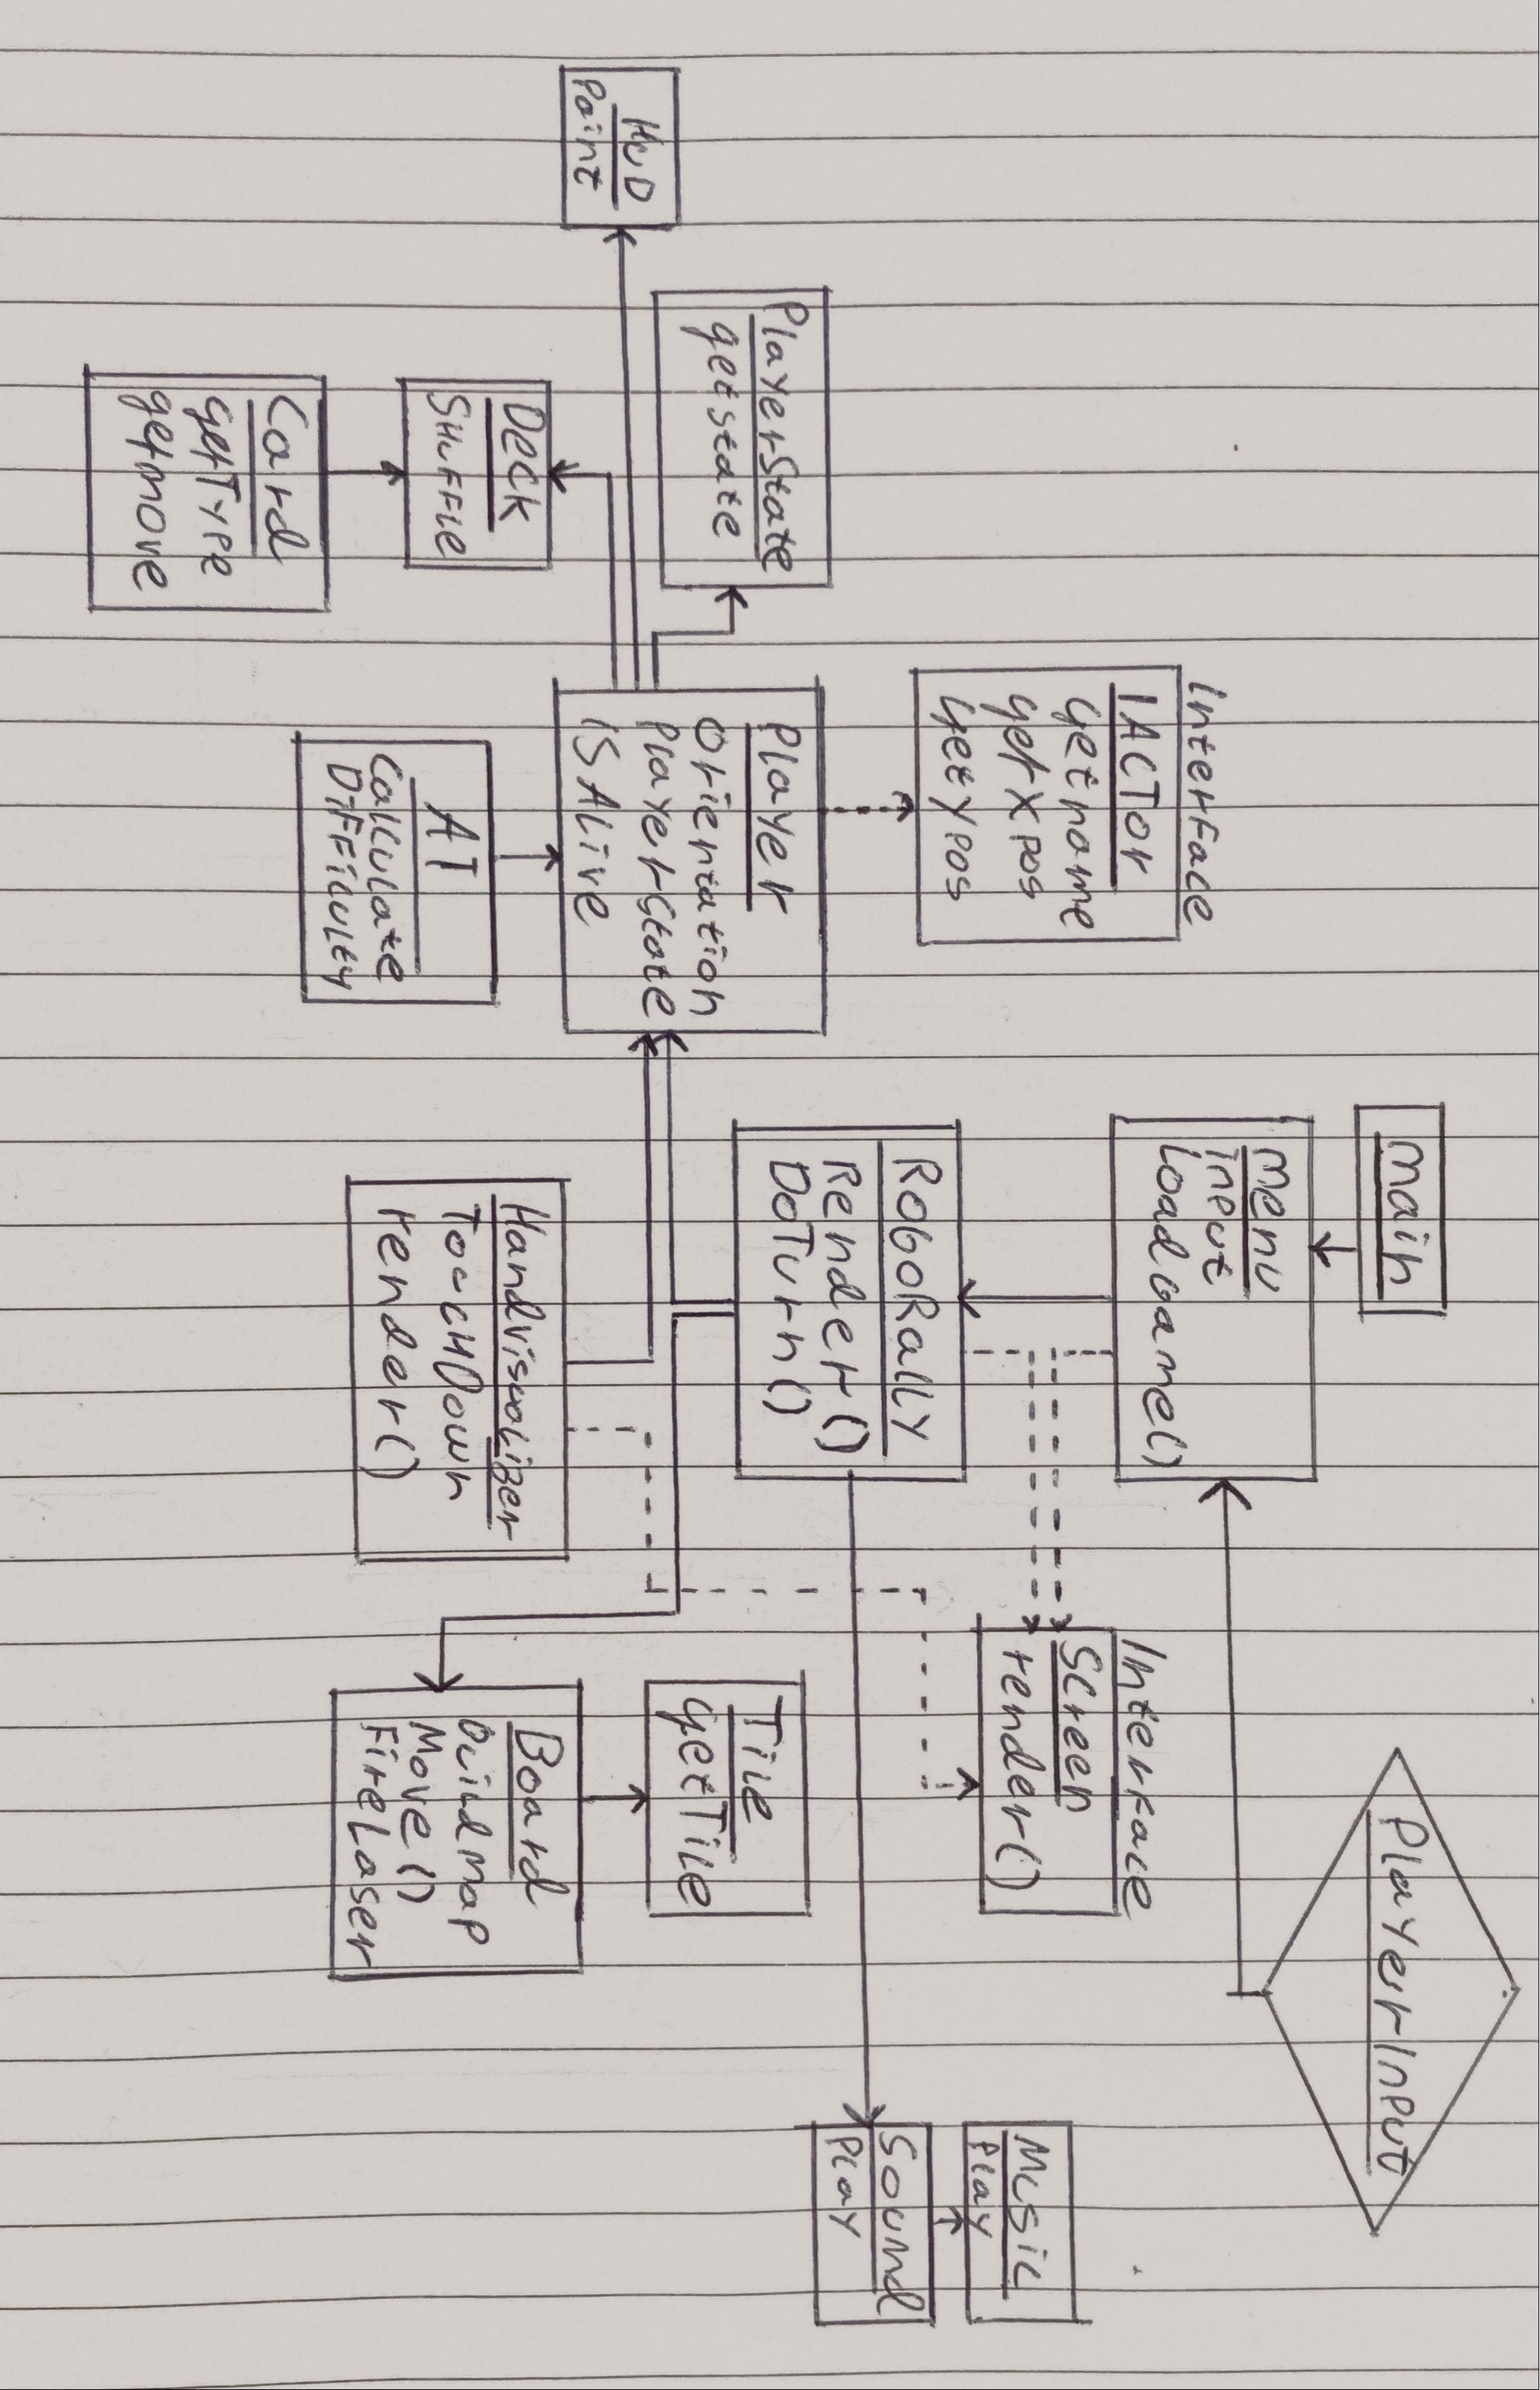 main
PlayerInput
menu
input
LoadGame()
Interface
IACTor
getname
getXpos
getypos
Interface
Screen
render()
Music
Play
Sound
Play
RoboRally
Render()
DoTurn()
PlayerState
getstate
Player
Orientation
PlayerState
ISALive
Tile
getTile
HUD
Paint
Deck
SHUFFLE
AI
Calculate
Difficulty
Handvisualizer
TouchDown
render()
Board
BuildMap
Move()
FireLaser
Card
getType
getmove